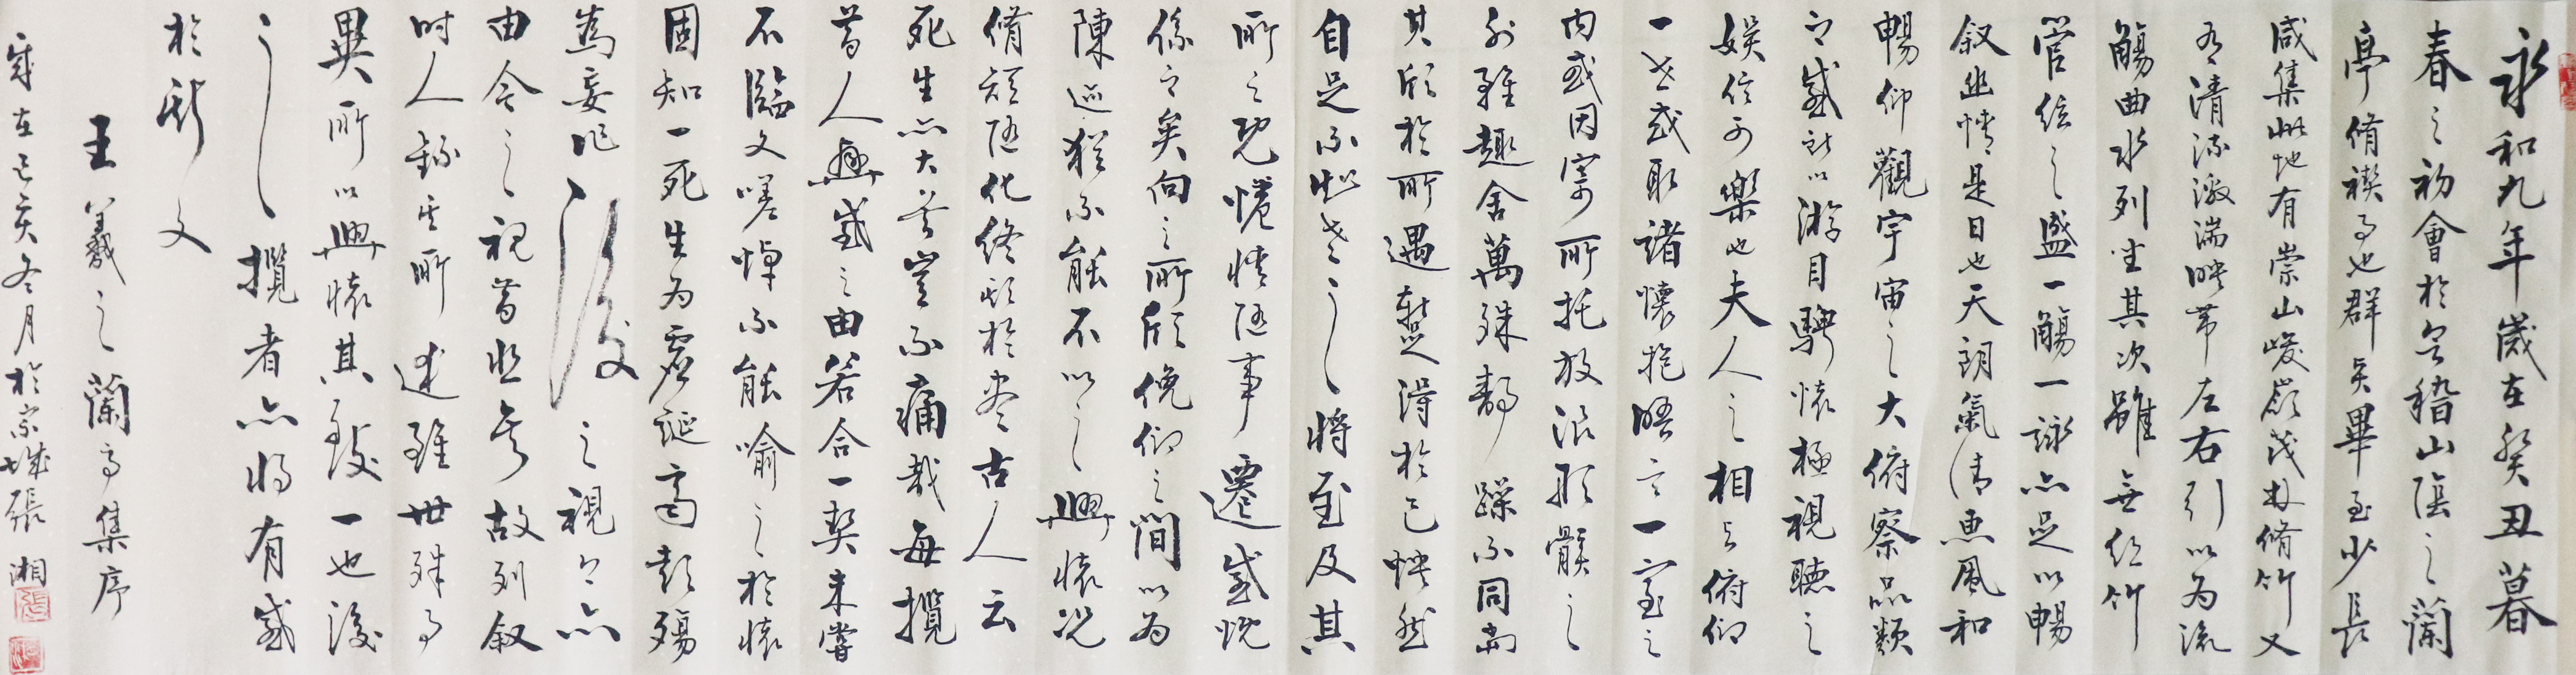 永和九年歲在癸丑暮
春之初會於會稽山陰之蘭
亭脩禊事也群賢畢至少長
咸集此地有崇山峻嶺茂林脩竹又
有清流激湍映帶左右引以為流
觴曲水列坐其次雖無絲竹
管弦之盛一觴一詠亦足以暢
叙幽情是日也天朗氣清惠風和
暢仰觀宇宙之大俯察品類
之盛所以游目騁懷極視聽之
娛信可樂也夫人之相與俯仰
一世或取諸懷抱晤言一室之
內或因寄所托放浪形骸之
外雖趣舍萬殊靜躁不同當
其欣於所遇暫得於己快然
自足不知老之將至及其
所之既惓情隨事遷感慨
係之矣向之所欣俛仰之間以為
陳迹猶不能不以之興懷況
脩短隨化終期於盡古人云
死生亦大矣豈不痛哉每攬
昔人興感之由若合一契未嘗
不臨文嗟悼不能喻之於懷
固知一死生為虛誕齊彭殤
為妄作後之視今亦
由今之視昔悲夫故列叙
時人錄其所述雖世殊事
異所以興懷其致一也後
之攬者亦將有感
於斯文
王羲之蘭亭集序
歲在己亥冬月於京城張湘